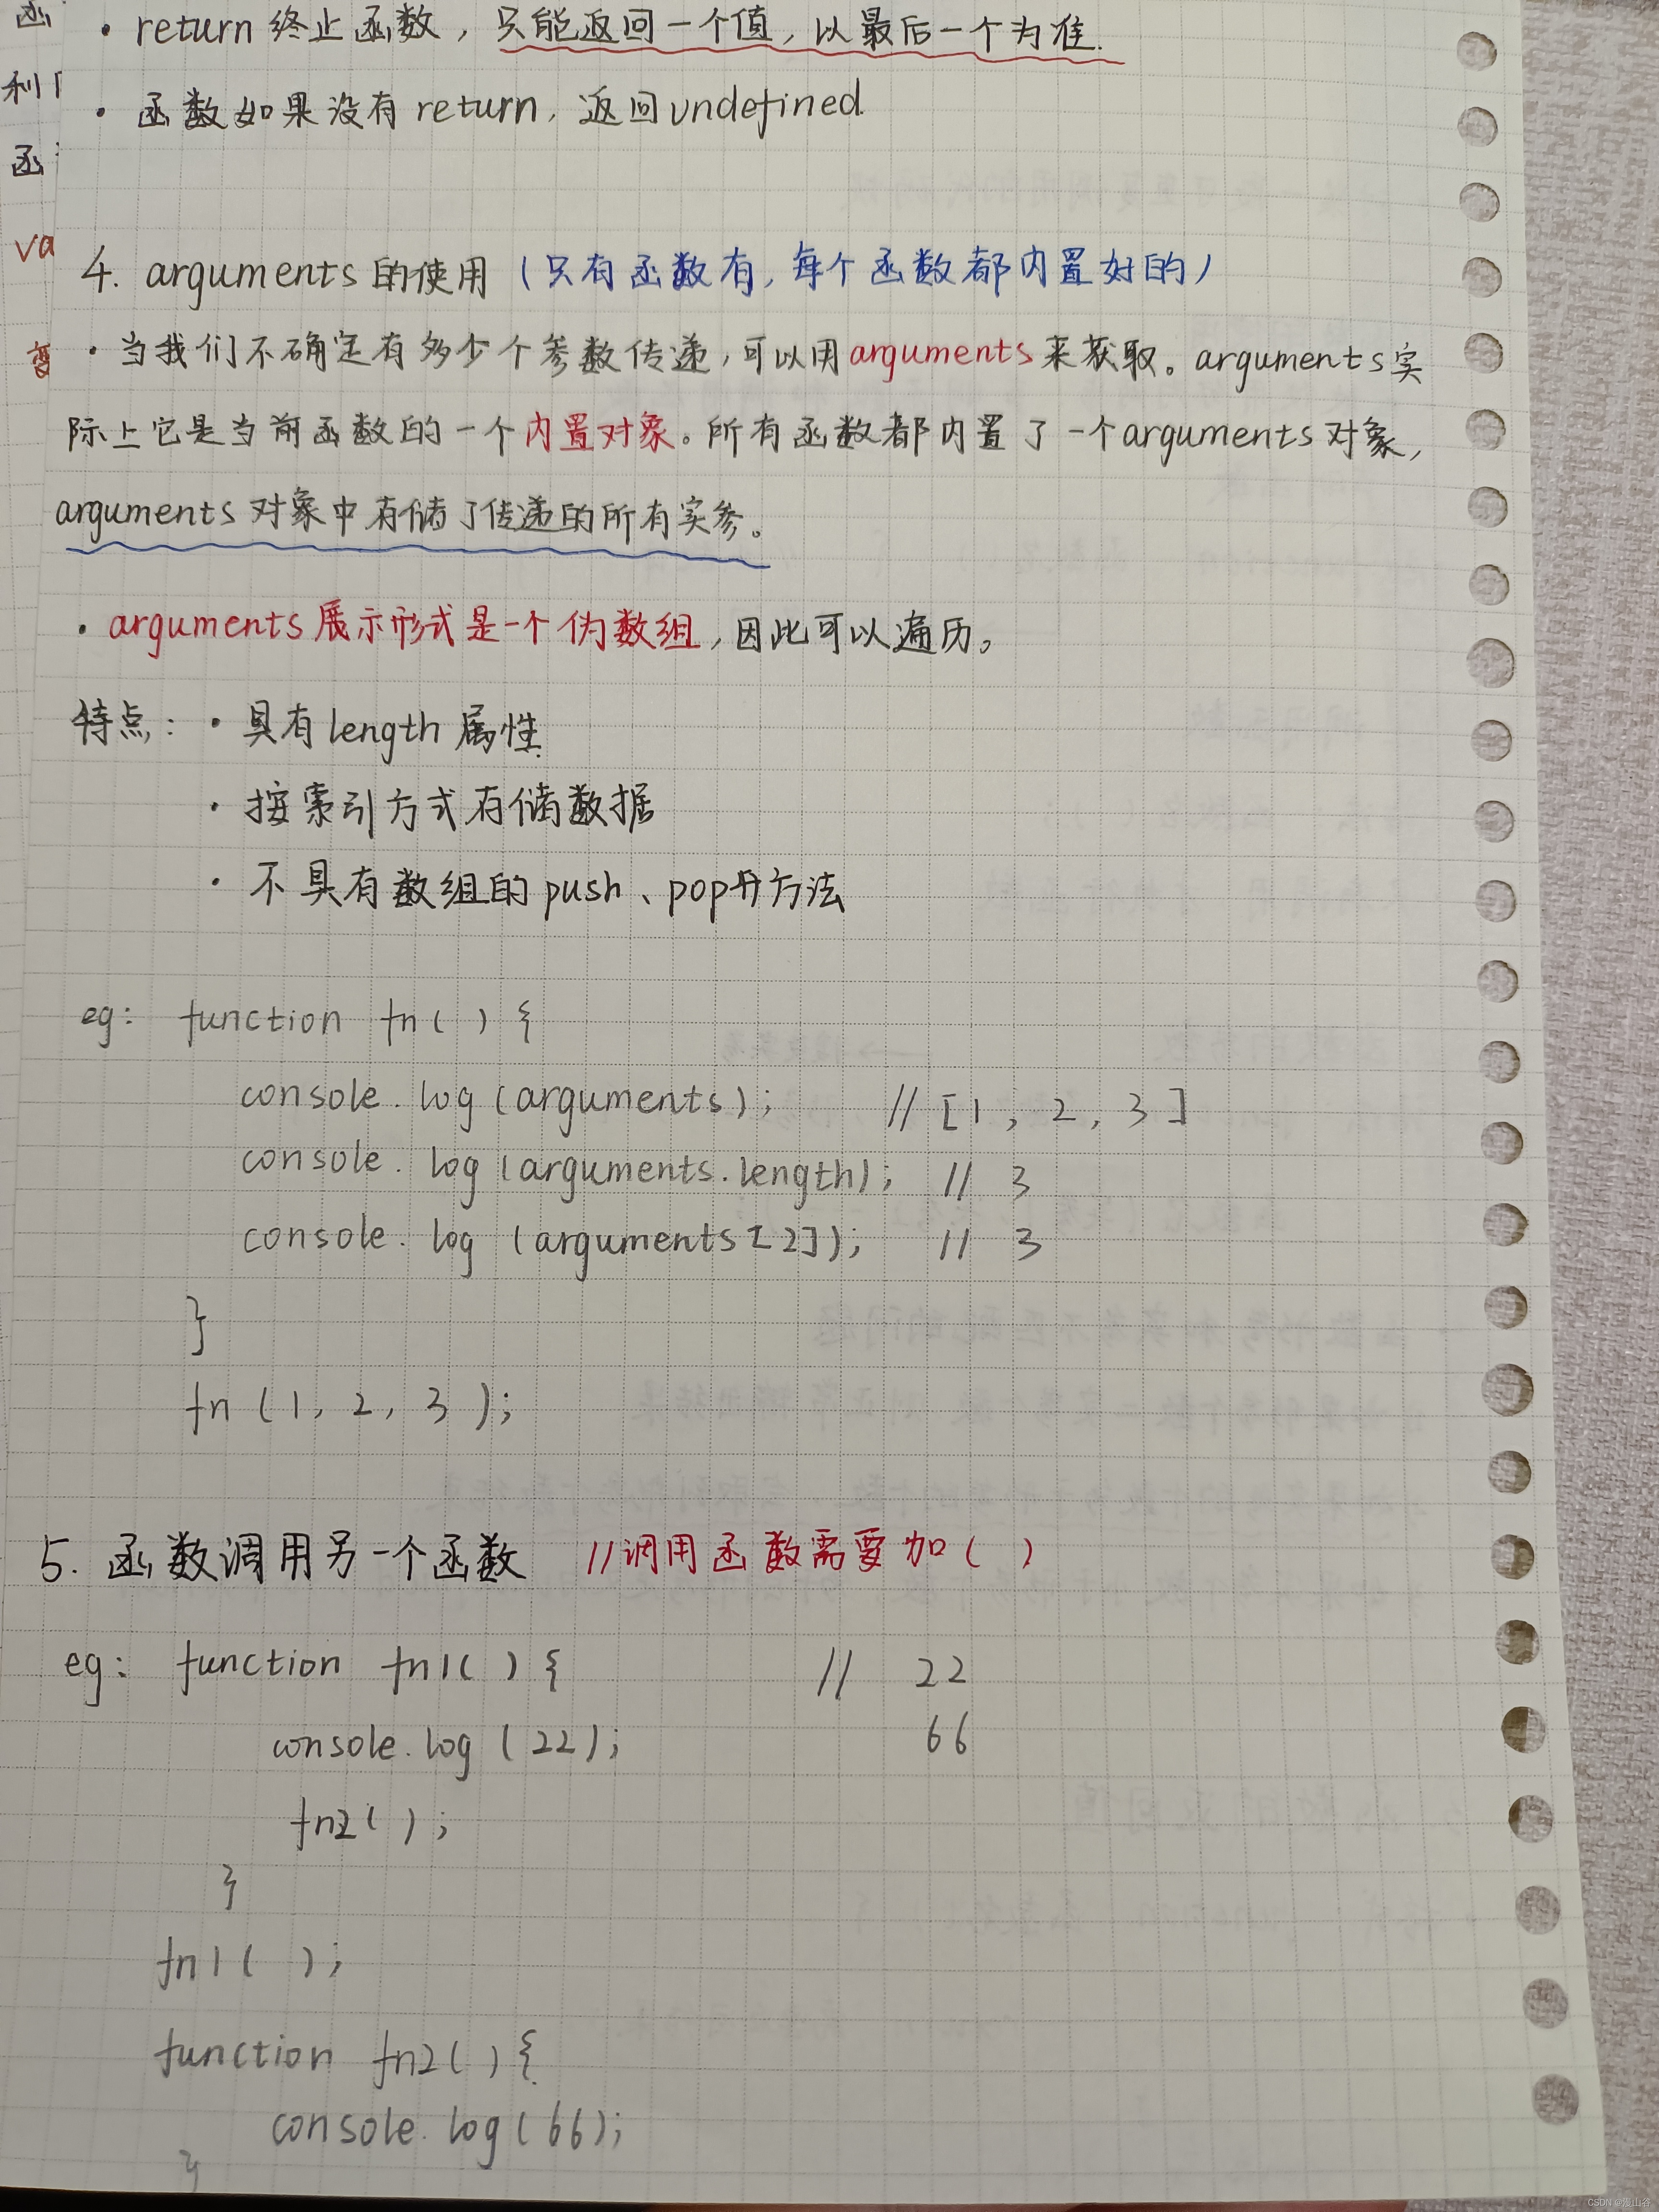 · return 终止函数，只能返回一个值，以最后一个为准.
· 函数如果没有 return，返回 undefined.
4. arguments 的使用（只有函数有，每个函数都内置好的）
· 当我们不确定有多少个参数传递，可以用arguments来获取。arguments实
际上它是当前函数的一个内置对象。所有函数都内置了一个arguments对象，
arguments 对象中存储了传递的所有实参。
· arguments 展示形式是一个伪数组，因此可以遍历。
特点：· 具有 length 属性.
· 按索引方式存储数据
· 不具有数组的 push、pop 方法
eg: function fn( ) {
console.log (arguments); // [1, 2, 3]
console.log (arguments.length); // 3
console.log (arguments[2]); // 3
}
fn (1, 2, 3);
5. 函数调用另一个函数 //调用函数需要加( )
eg: function fn1( ) { // 22
console.log (22); 66
fn2( );
}
fn1( );
function fn2( ) {
console.log(66);
}
函
利
函
va
CSDN